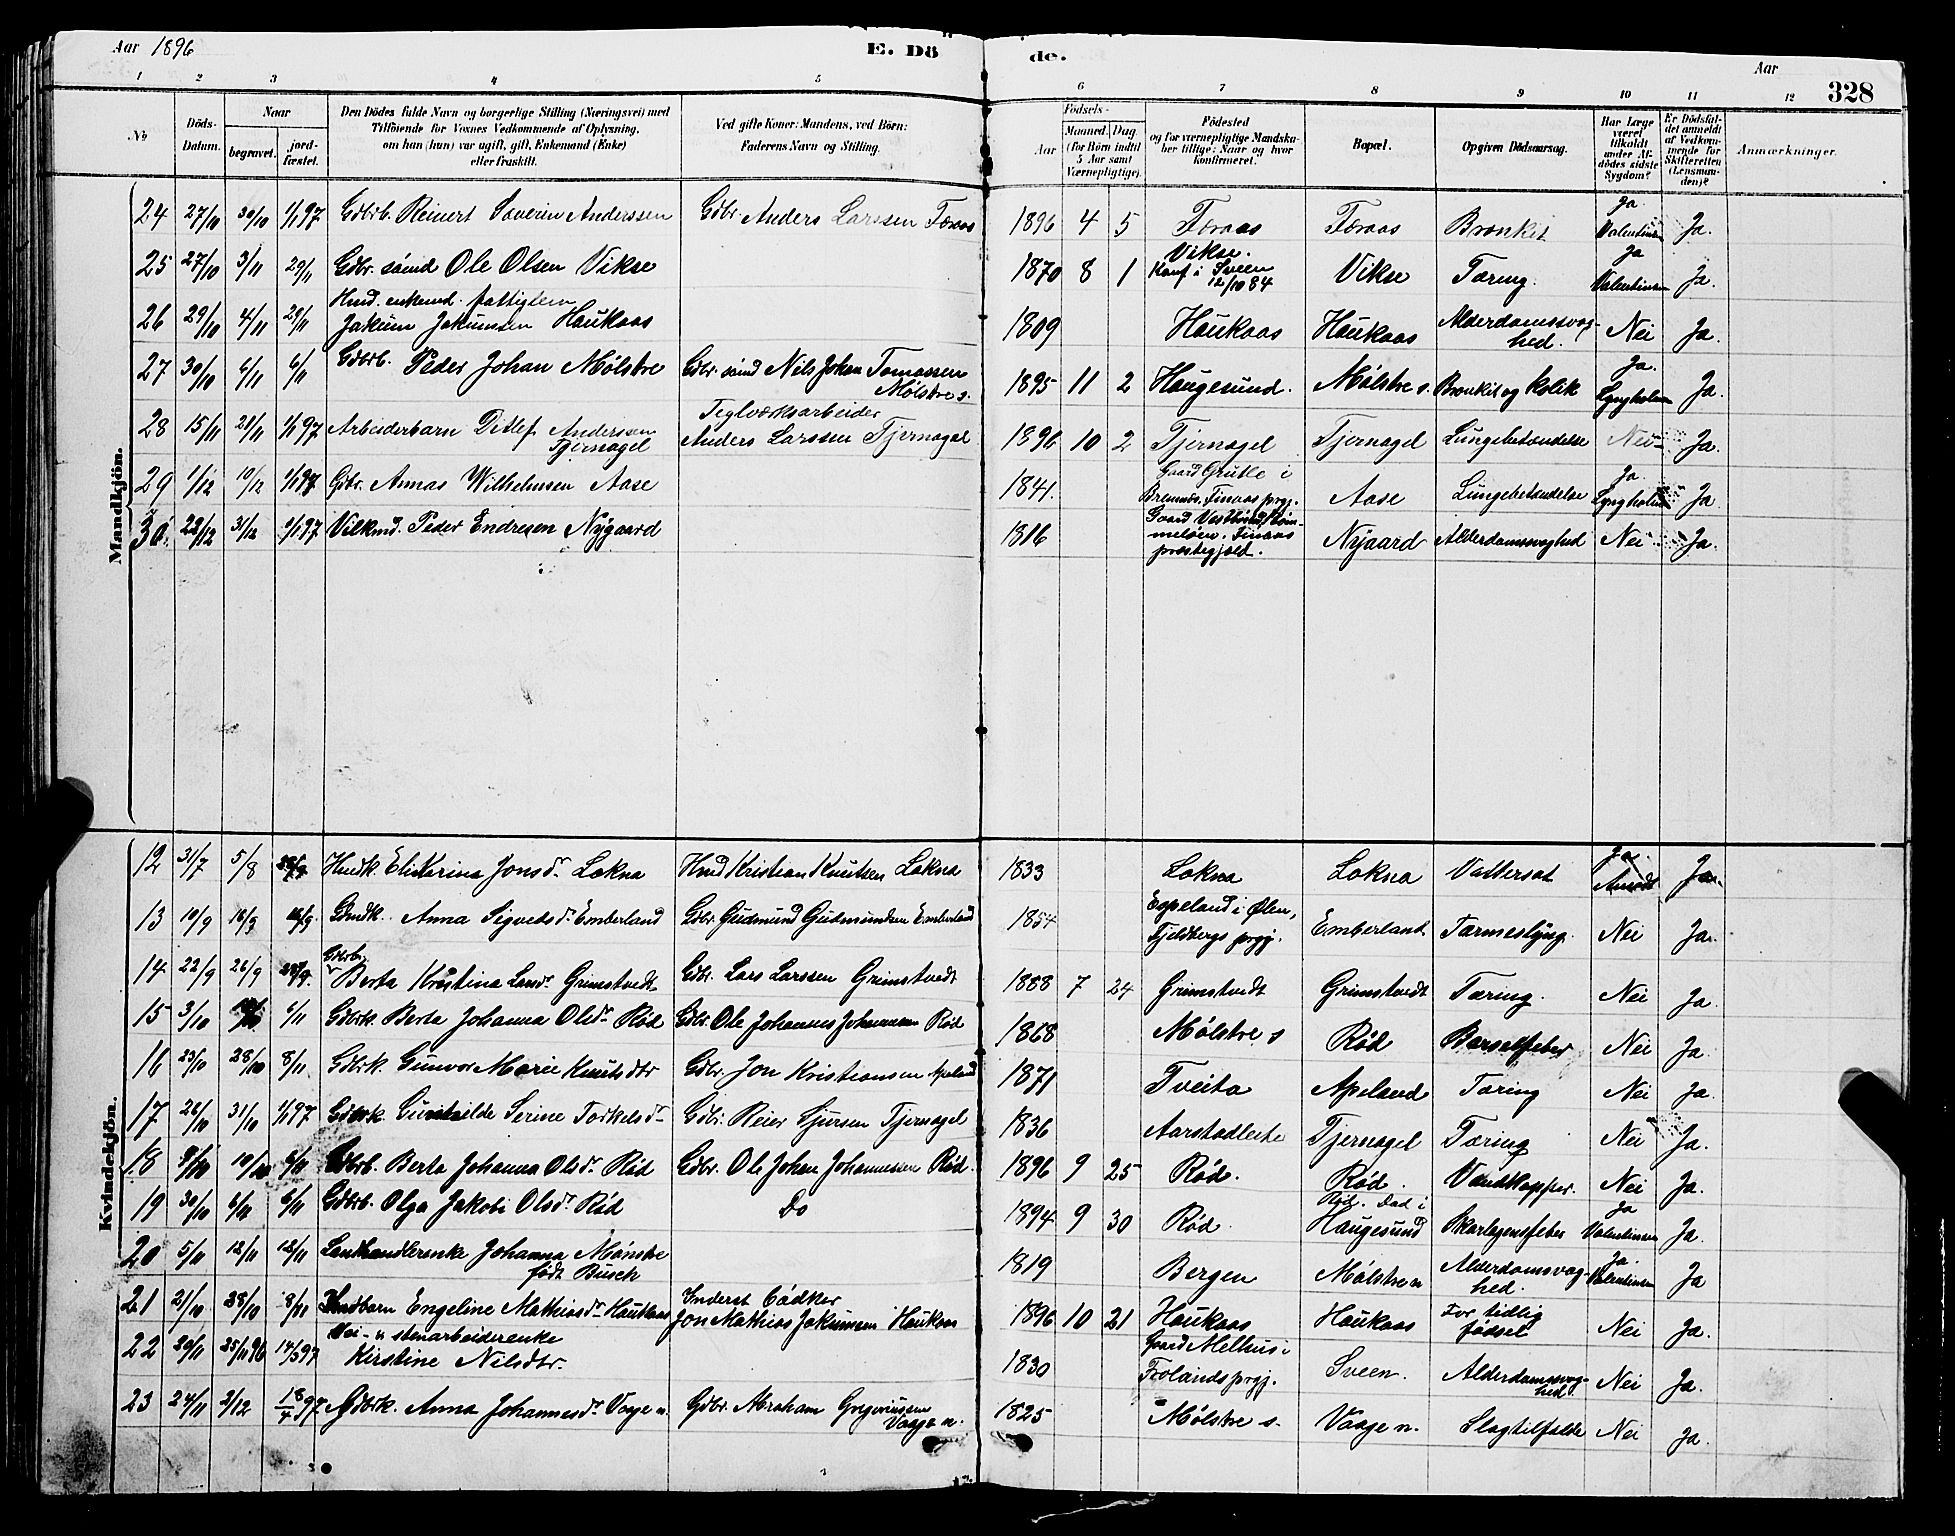 Aar 1896 E. Dö de. Aar 328
1 2 3 4 5 6 7 8 9 10 11 12
No Döds-Datum. Naar begravet. jord-fæstet. Den Dödes fulde Navn og borgerlige Stilling (Næringsvei) med Tilföiende for Voxnes Vedkommende af Oplysning, om han (hun) var ugift, gift, Enkemand (Enke) eller fraskilt. Ved gifte Koner: Mandens, ved Börn: Faderens Navn og Stilling. Födsels- Aar Maaned. Dag. (for Börn indtil 5 Aar samt Værnepligtige). Födested og for værnepligtige Mandskaber tillige: Naar og hvor konfirmeret. Bopæl. Opgiven Dödsaarsag. Har Læge været tilkaldt under Afdödes sidste Sygdom? Er Dödsfaldet anmeldt af Vedkommende for Skifteretten (Lensmanden)? Anmærkninger.
Mandkjön.
24 27/10 30/10 1/1 97 Gdbrb. Reinert Severin Anderssen Gdbr. Anders Larssen Føraas 1896 4 5 Føraas Føraas Bronkit Ja Valentinsen Ja.
25 27/10 3/11 29/11 Gdbr. sønd Ole Olsen Vikse 1870 8 1 Vikse. Konf i Sveen 12/10 84 Vikse Tæring. Ja Valentinsen Ja.
26 29/10 4/11 29/11 Hmd. enkemd. fattiglem Jakum Jakumsen Haukaas 1809 Haukaas Haukaas Alderdomssvaghed. Nei Ja.
27 30/10 6/11 6/11 Gdbrb. Peder Johan Mølstre Gdbr. sønd Nils Johan Tomassen Mølstre s. 1895 11 2 Haugesund. Mølstre s. Bronkit og kolik Ja. Lyngholm Ja.
28 15/11 21/11 1/1 97 Arbeiderbarn Detlef Andersen Tjernagel Teglværksarbeider Anders Larssen Tjernagel 1896 10 2 Tjernagel Tjernagel Lungebetændelse Nei Ja.
29 1/12 10/12 1/1 97 Gbr. Amas Wilhelmsen Aase 1841. Gaard Grutle i Bremnes. Finaas prgj. Aase Lungebetændelse Ja. Lyngholm Ja
30 22/12 31/12 1/1 97 Vilkmd. Peder Endresen Nygaard 1816 Gaard Finaas præstegjeld. Nyaard Alderdomssvaghed Nei Ja.
Kvindekjön.
12 31/7 5/8 Hmdk. Jonsdr. Løkna Hmd Kristian Knutsen Løkna 1833 Løkna Løkna Vattersot Ja Ja.
13 10/9 16/9 Gmdk. Anna Sigvedsdr. Emberland Gdbr. Gudmund Gudmundsen Emberland 1854 Espeland i Ølen, Fjeldbergs prgj. Emberland Tarmeslyng. Nei Ja.
14 22/9 26/9 Gdbrb. Berta Kristina Larsdr. Grimstvedt Gdbr. Lars Larssen Grimstvedt 1888 7 24 Grimstvedt Grimstvedt Tæring. Nei Ja.
15 3/10 6/11 Gdbrk. Berta Johanna Olsdr. Rød Gdbr. Ole Johannes Johannessen Rød 1868 Mølstre s Rød Barselfeber Nei Ja.
16 23/10 28/10 8/11 Gdbrk. Gunvor Marie Knutsdtr Gdbr. Jon Kristiansen Apeland 1871 Tveita Apeland Tæring Nei Ja.
17 26/10 31/10 1/1 97 Gdbrk. Gunhilde Serine Torkelsdr. Gdbr. Reier Sjursen Tjernagel 1836 Aarstadleite Tjernagel Tæring Nei Ja.
18 10/10 6/11 Gdbrb. Berta Johanna Olsdr. Rød Gdbr. Ole Johan Johannessen Rød. 1896 9 25 Rød. Rød. Vandkopper. Nei Ja.
19 30/10 6/11 6/11 Gdbrb. Olga Jakobi Olsdr. Rød Do 1894 9 30 Rød. Rød. Død i Haugesund Skarlagensfeber Ja Valentinsen Ja.
20 5/11 12/11 12/11 Landhandlerenke Johanna Mønstre født Busch 1819 Bergen Mølstre n Alderdomsvaghed. Ja. Valentinsen Ja
21 21/10 28/10 8/11 Hmdbarn Engeline Mathiasdr. Haukaas Inderst Bødker Jon Mathias Jakumsen Haukaas 1896 10 21 Haukaas Haukaas For tidlig fødsel Nei Ja.
22 20/11 25/11 96 14/3 97 Vei- u stenarbeiderenke Kirstine Nilsdtr. 1830 Gaard Melhus i Frolands prgj. Sveen. Alderdomssvaghed Nei Ja.
23 24/11 2/12 18/4 97 Gdbrk. Anna Johannesdr. Vaage n. Gdbr. Abraham Gregoriussen Vaage n. 1825 Mølstre s. Vaage n. Slagtilfælde Nei Ja.